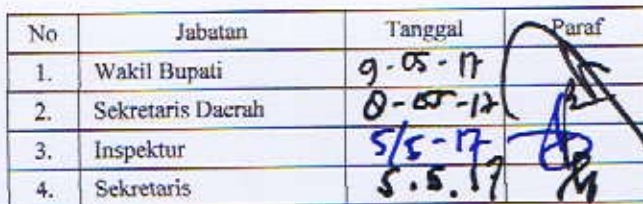 No Jabatan Tanggal Paraf
1. Wakil Bupati 9-05-17
2. Sekretaris Daerah 8-05-17
3. Inspektur 5/5-17
4. Sekretaris 5.5.17